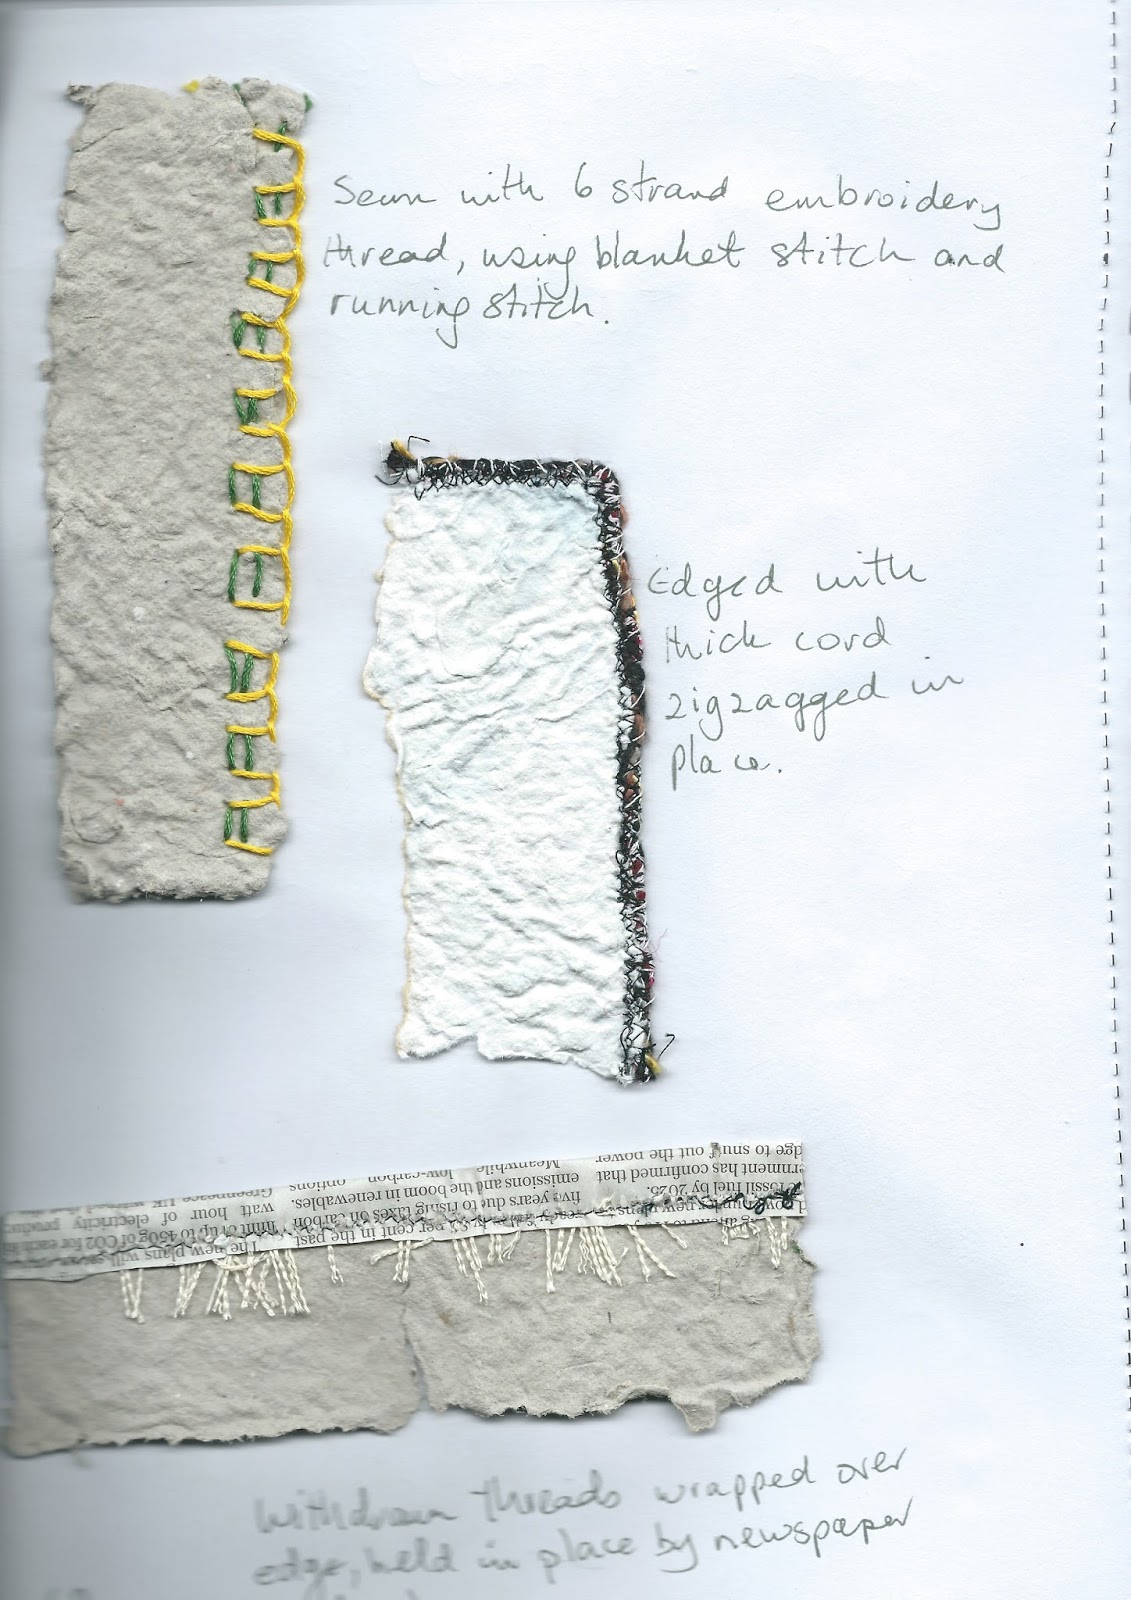 Sewn with 6 strand embroidery
thread, using blanket stitch and
running stitch.
Edged with
thick cord
zigzagged in
place.
under new plans to
Fossil fuel by 2025.
ernment has confirmed that
dge to snuff out the power
per cent in the past
five years due to rising taxes on carbon
emissions and the boom in renewables.
Meanwhile low-carbon options
The new plans will
limit of up to 450g of CO2 for each
watt hour of electricity produc
Greenpeace UK
Withdrawn threads wrapped over
edge, held in place by newspaper